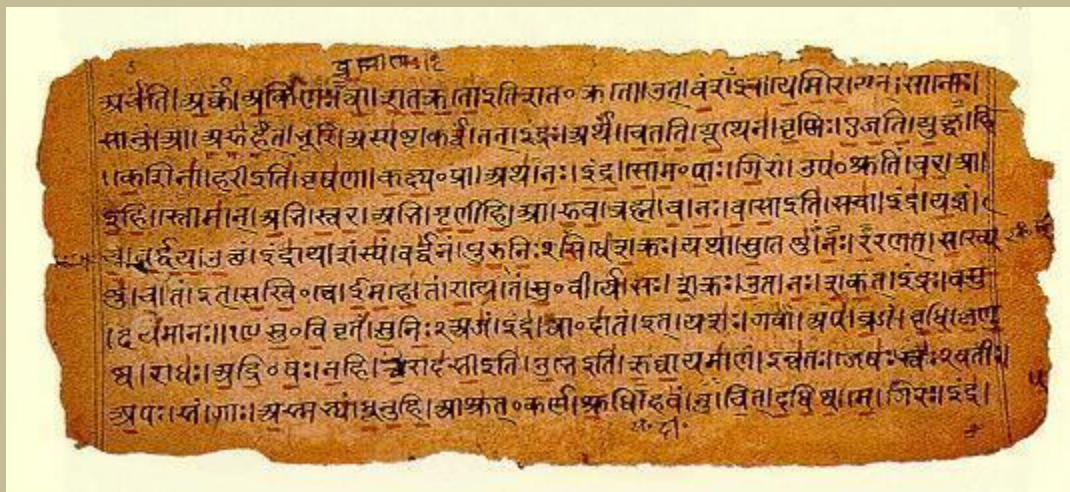 अर्चंति। अर्कं। अर्किणः। त्वा। शतक्रतो इति शत०क्रतो। उत्। वंशंऽइव। येमिरे। यत्। सानोः।
सानुं। आ। अरुहत्। भूरि। अस्पष्ट। कर्त्वं। तत्। इंद्रः। अर्थं। चेतति। यूथेन। वृष्णिः। एजति। युक्ष्व। हि
।केशिना। हरी इति। वृषणा। कक्ष्य०प्रा। अथ। नः। इंद्र। सोम०पाः। गिरां। उप०श्रुतिं। चर। आ।
इहि। स्तोमान्। अभि। स्वर। अभि। गृणीहि। आ। रुव। ब्रह्म। च। नः। वसो इति। सचा। इंद्र। यज्ञं।
च। वर्द्धय। उक्थं। इंद्राय। शंस्यं। वर्द्धनं। पुरुनिः२सिधे। शक्रः। यथा। सुतेषु। नः। ररणत्। सख्ये
षु। च। तं। इत्। सखि०त्वे। ईमहे। तं। राये। तं। सु०वीर्ये। सः। शक्रः। उत। नः। शकत्। इंद्रः। वसु
। दयमानः॥१९ सु०विवृतं। सुनिः२अजं। इंद्र। त्वा०दातं। इत्। यशः। गवां। अप। व्रजं। वृधि। कृणु
ष्व। राधः। अद्रि०वः। नहि। त्वा। रोदसी इति। उभे इति। ऋघायमाणं। इन्वतः। जेषः। स्वः२वतीः।
अपः। सं। गाः। अस्मभ्यं। धूनुहि। आश्रुत्०कर्ण। श्रुधि। हवं। नु। चित्। दधिष्व। मे। गिरः। इंद्र।